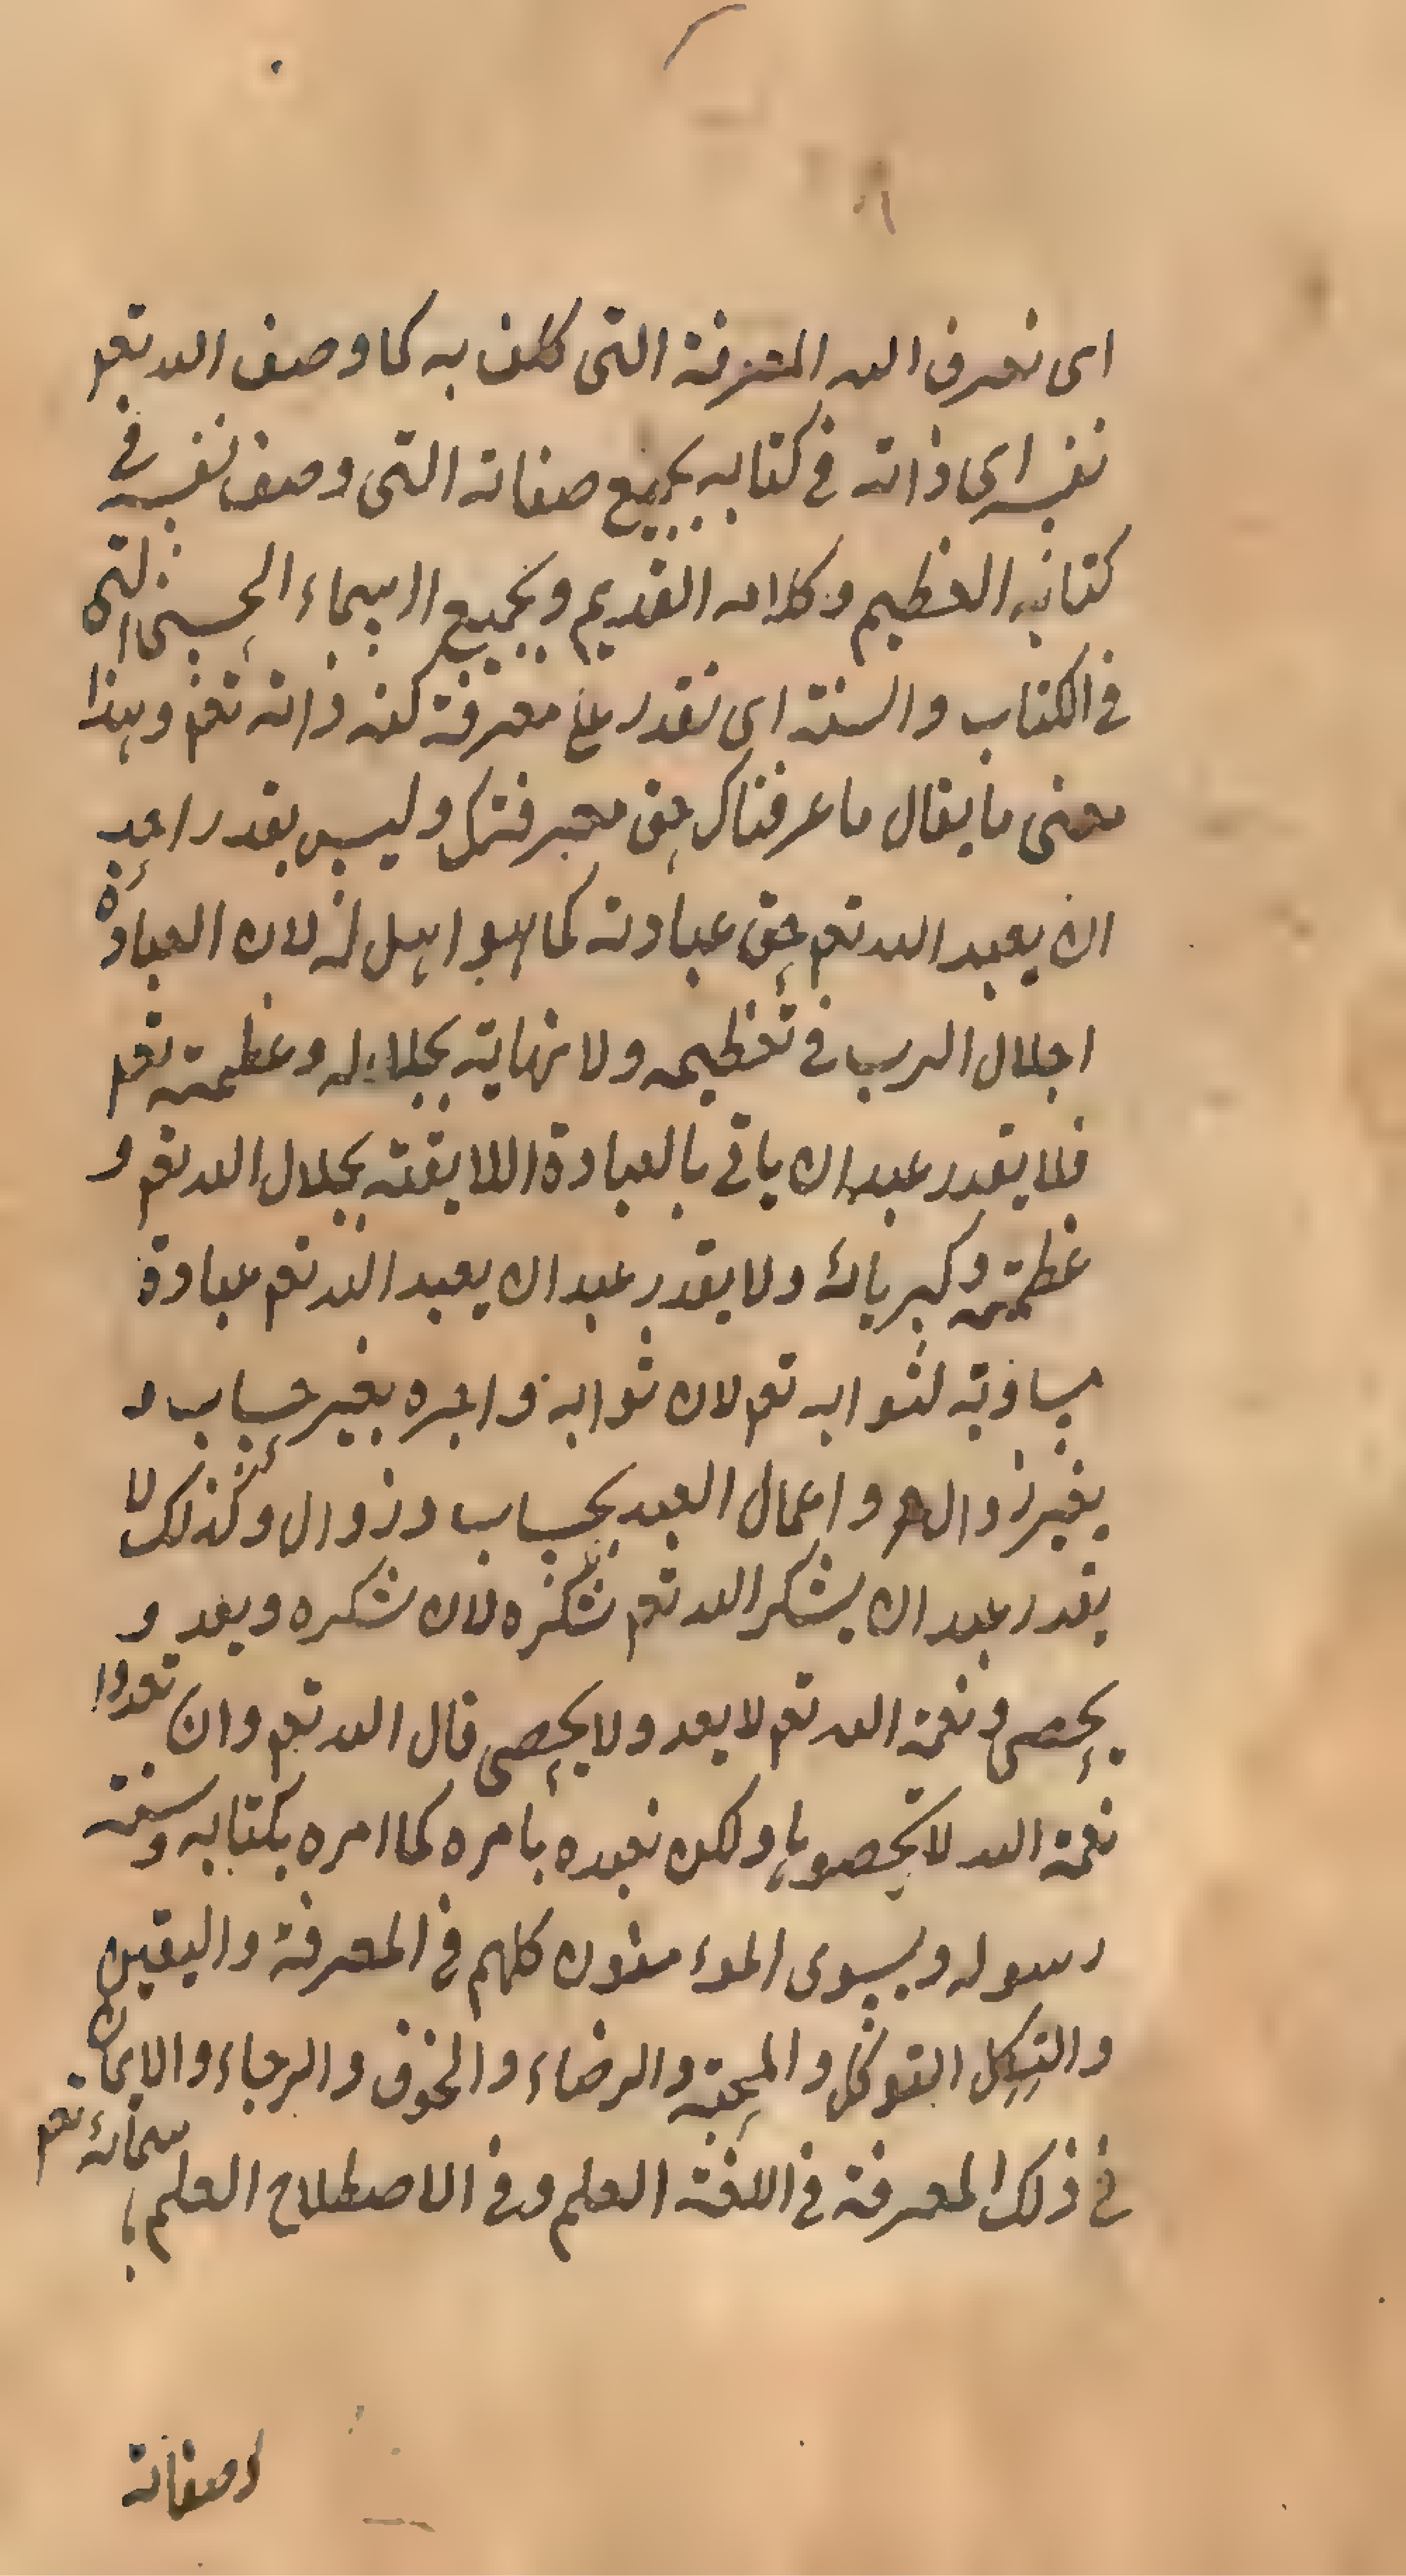 اى نعرف الله المعرفة التى كلف به كما وصف الله تعم
نفسه اى ذاته فى كتابه بجميع صفاته التى وصف نفسه فى
كتابه العظيم وكلامه القديم وبجميع الاسماء الحسنى التى
فى الكتاب والسنة اى نقدر على معرفة كنه ذاته تعم وهذا
معنى ما يقال ما عرفناك حق معرفتك وليس يقدر احد
ان يعبد الله تعم حق عبادته كما هو اهل له لان العبادة
اجلال الرب فى تعظيمه ولا نهاية بجلاله وعظمته تعم
فلا يقدر عبد ان ياتى بالعبادة اللايقة بجلال الله تعم و
عظمته وكبريائه ولا يقدر عبد ان يعبد الله تعم عبادة
مساوية لثوابه تعم لان ثوابه واجره بغير حساب و
بغير زوال واعمال العبد بحساب وزوال وكذلك لا
يقدر عبد ان يشكر الله تعم شكره لان شكره ويعد و
يحصى ونعمة الله تعم لا يعد ولا يحصى قال الله تعم وان تعدوا
نعمة الله لا تحصوها ولكن نعبده بامره كما امره بكتابه وسنة
رسوله ويسوى المؤمنون كلهم فى المعرفة واليقين
والتوكل والمحبة والرضاء والخوف والرجاء والايمان
فى ذلك المعرفة فى اللغة العلم وفى الاصطلاح العلم باسمائه تعم
وصفاته